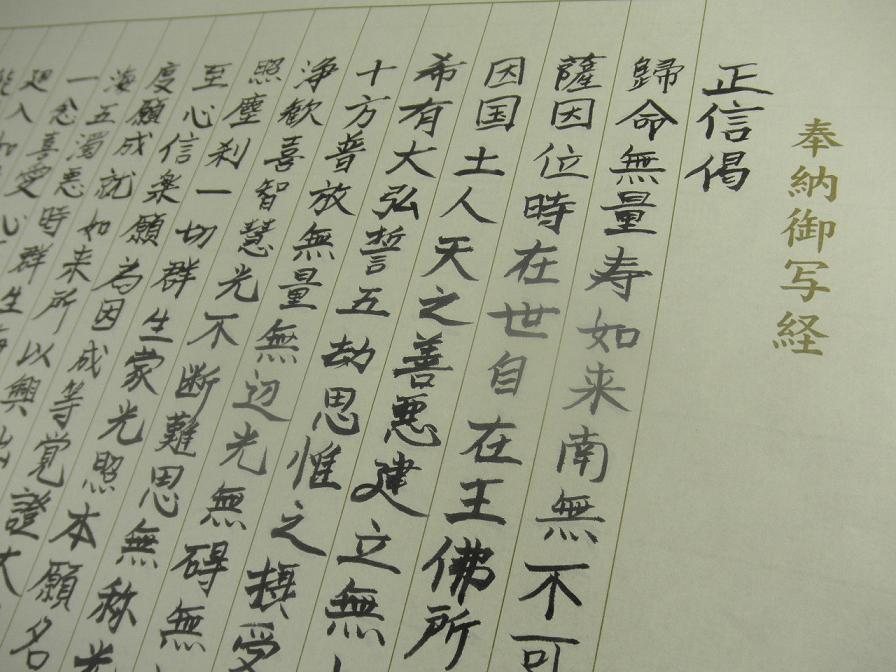 奉納御写経
正信偈
歸命無量寿如来南無不可
薩因位時在世自在王佛所
因国土人天之善悪建立無
希有大弘誓五劫思惟之摂受
十方普放無量無辺光無碍無
浄歓喜智慧光不断難思無称光
照塵刹一切群生蒙光照本願名
至心信楽願為因成等覚證大
度願成就如来所以興出
海五濁悪時群生
一念喜愛心
能